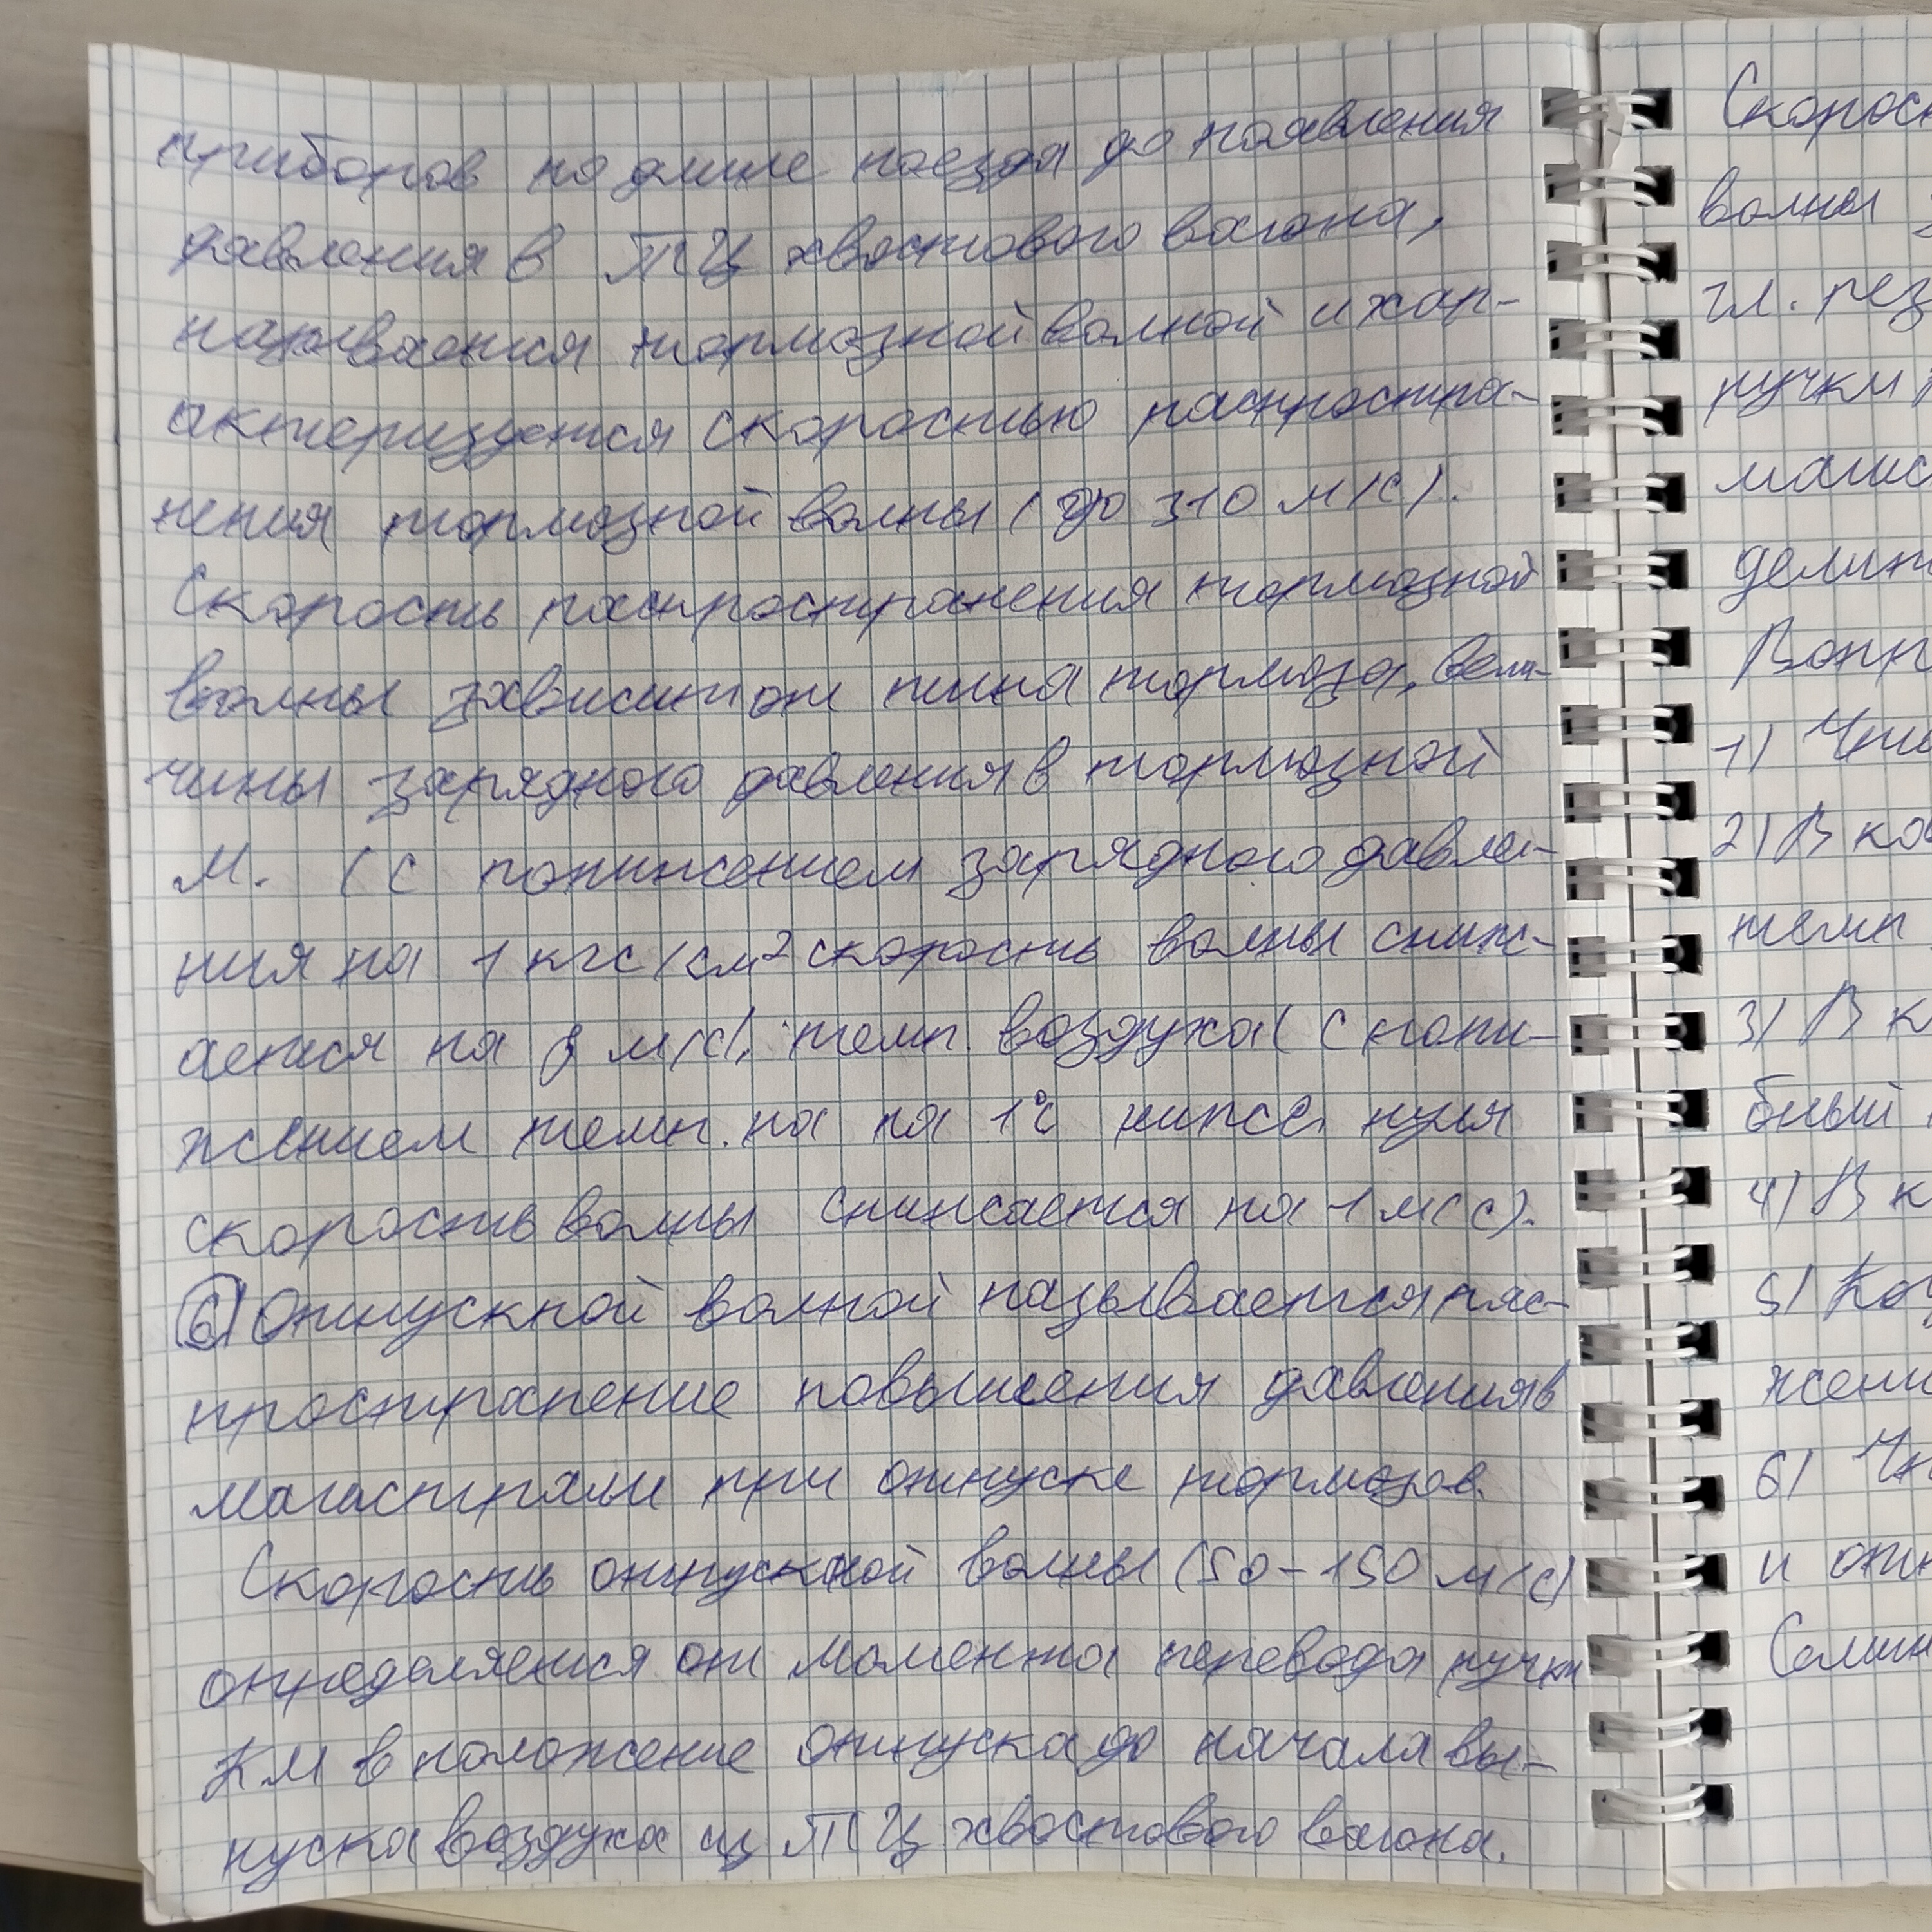 приборов по длине поезда до появления
давления в ТЦ хвостового вагона,
называется тормозной волной и хар-
актеризуется скоростью распростра-
нения тормозной волны (до 310 м/с).
Скорость распространения тормозной
волны зависит от типа тормоза, вели-
чины зарядного давления в тормозной
М. (с понижением зарядного давле-
ния на 1 кгс/см² скорость волны сниж-
ается на 8 м/с), темп. воздуха (с пони-
жением темп. на на 1°С ниже нуля
скорость волны снижается на 1 м/с).
6) Отпускной волной называется рас-
пространение повышения давления в
магистрали при отпуске тормозов.
Скорость отпускной волны (50-150 м/с)
определяется от момента перевода ручки
КМ в положение отпуска до начала вы-
пуска воздуха из ТЦ хвостового вагона.
Скорос
волны
гл. рез
ручки
магис
делит
Вопр
1)
2) В ка
темп
3) В к
бный
4) В к
5) Ка
жени
6)
и отп